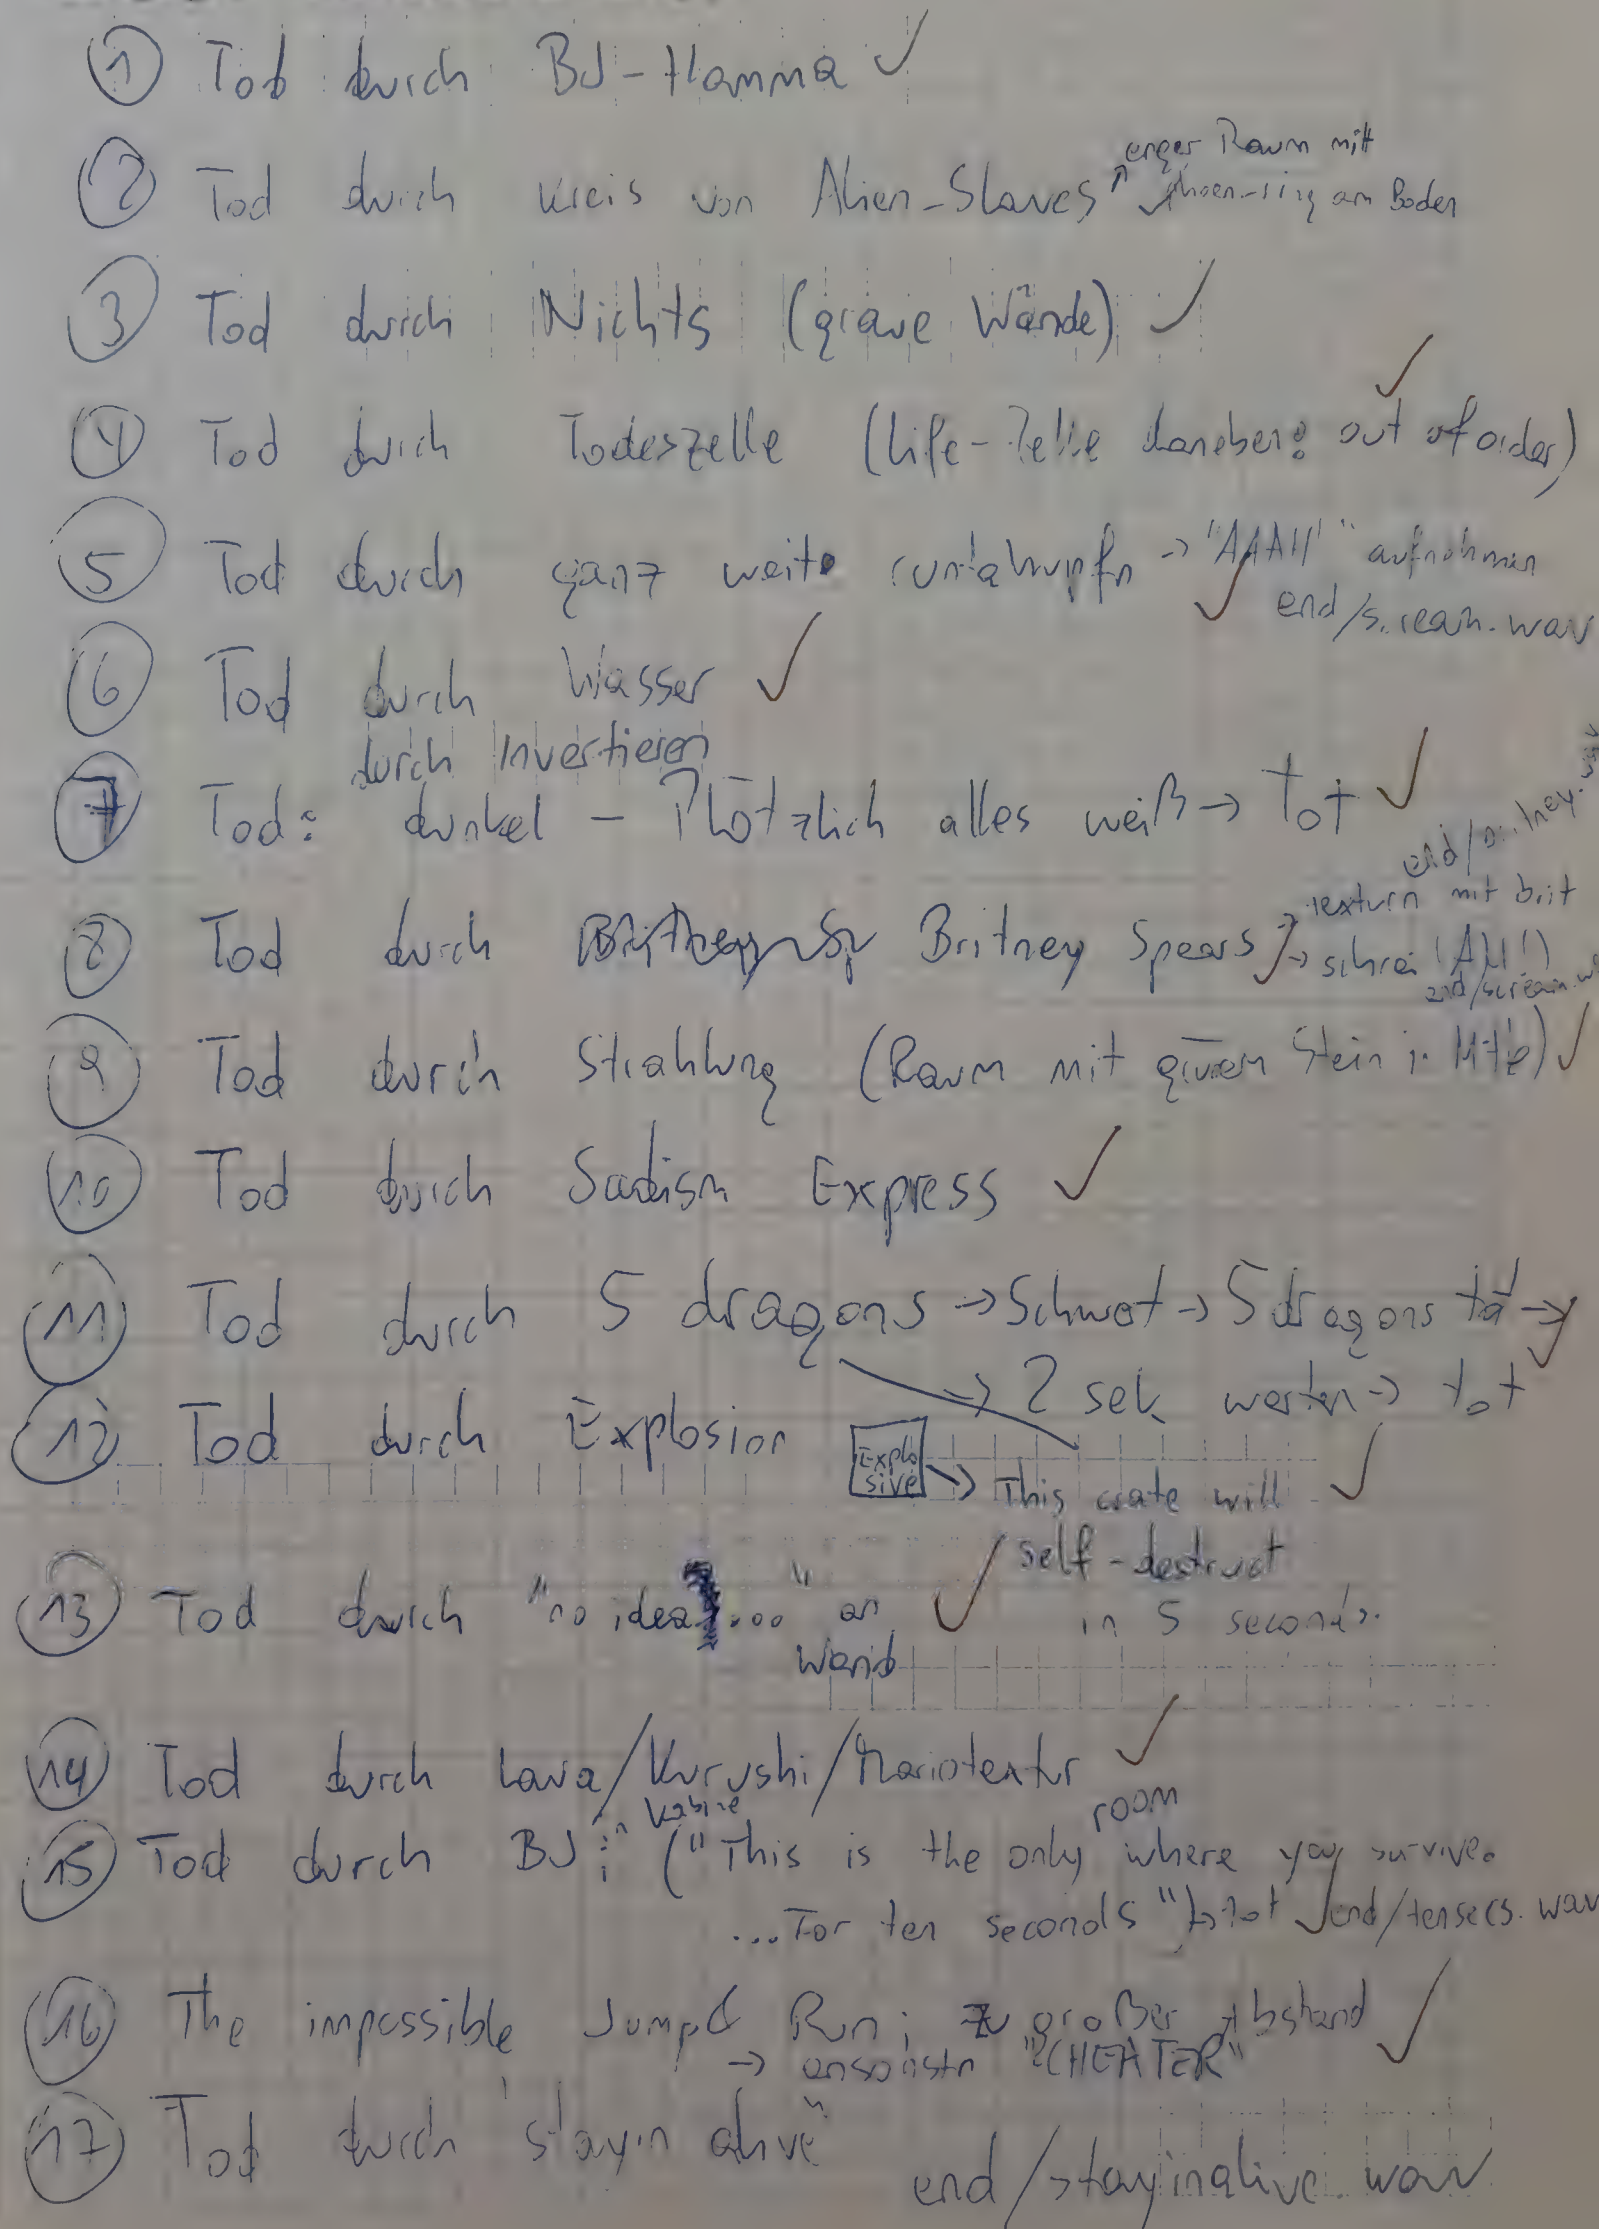 1 Tod durch BJ-Hamma ✓
enger Raum mit
2 Tod durch Kreis von Alien-Slaves ↗ ✓ am Boden
3 Tod durch Nichts (graue Wände) ✓
4 Tod durch Todeszelle (Life-Zelle daneben: out of order) ✓
5 Tod durch ganz weite runtahupfn → "AAAH" aufnehmen
✓ end/scream.wav
6 Tod durch Wasser ✓
durch Invertieren
7 Tod: dunkel – Plötzlich alles weiß → Tot ✓
end/britney.wav
texturn mit brit
8 Tod durch Britney Spears ✓ → schrei (AH!)
end/scream.wav
9 Tod durch Strahlung (Raum mit grünem Stein in Mitte) ✓
10 Tod durch Sadism Express ✓
11 Tod durch 5 dragons → Schwot → 5 dragons →
→ 2 sek warten → tot ✓
12 Tod durch Explosion
Explo
sive
→ This crate will ✓
self-destruct
in 5 seconds.
13 Tod durch "no idea..." an ✓
Wand
14 Tod durch Lava/Kurushi/Mariotextur ✓
in Kabine room
15 Tod durch BJ: ("This is the only where you survive.
...For ten seconds") → tot ✓ end/tensecs.wav
16 The impossible Jump & Run; zu großer Abstand ✓
→ ansonstn "CHEATER"
17 Tod durch "stayin alive"
end/stayinalive.wav